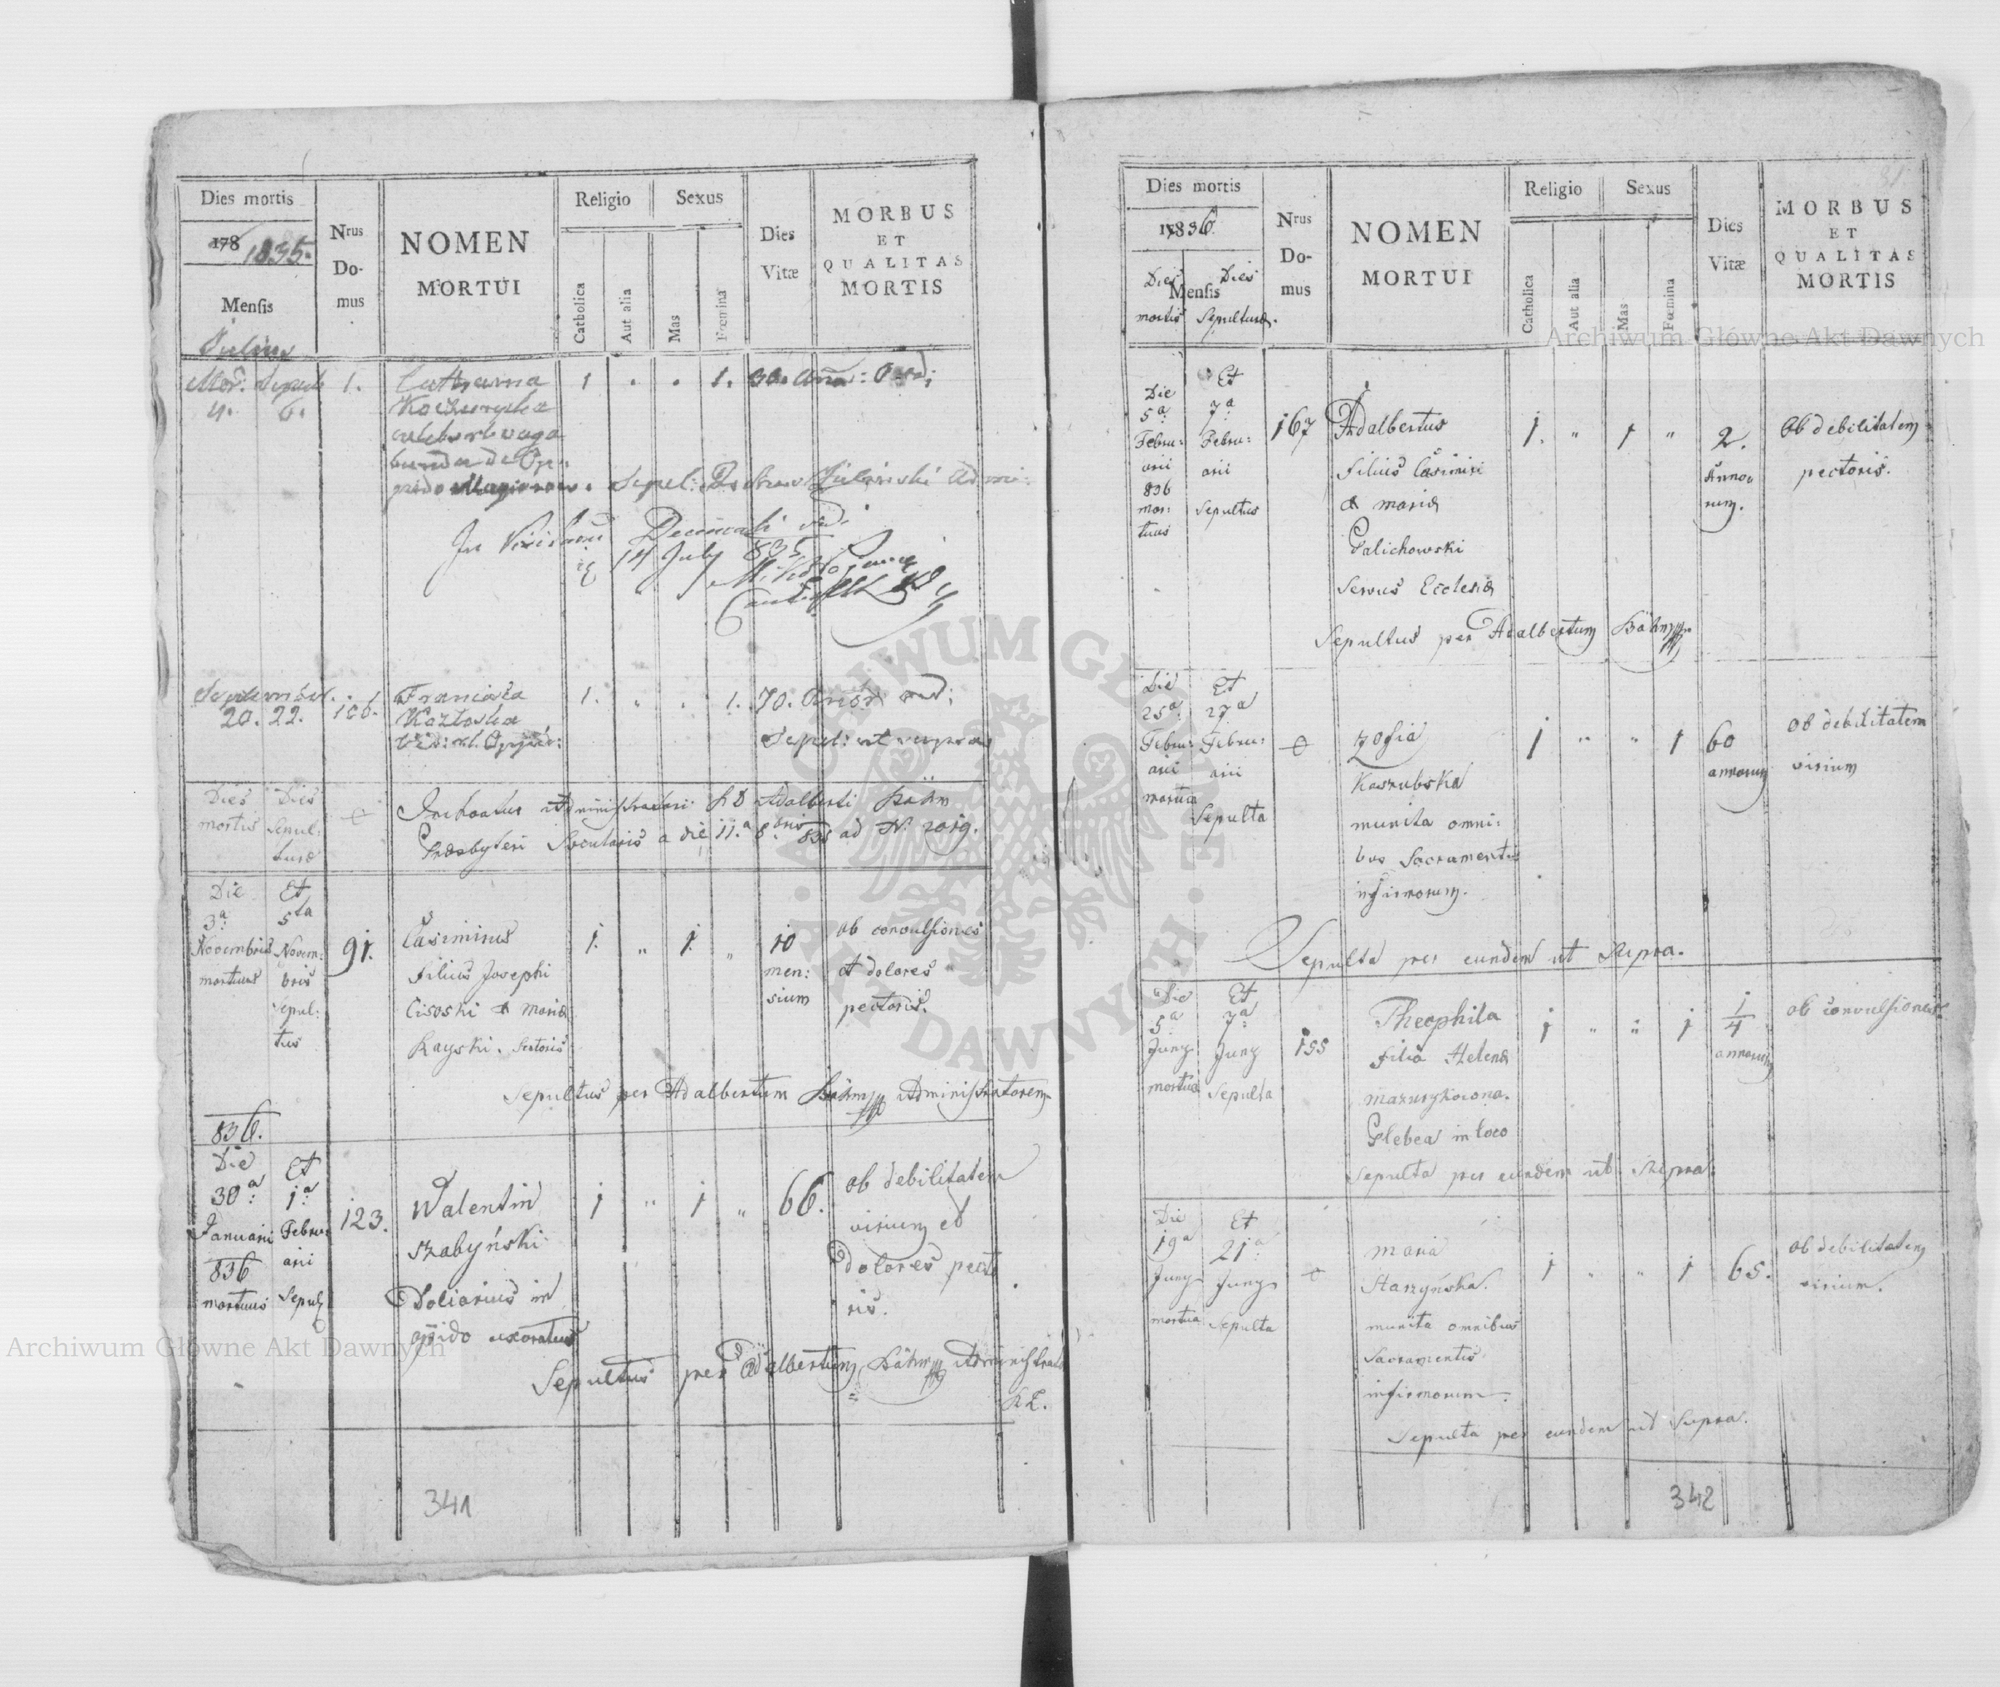 Dies mortis
178 1835.
Mensis
Julius
Nrus
Do-
mus
NOMEN
MORTUI
Religio
Catholica
Aut alia
Sexus
Mas
Fœmina
Dies
Vitæ
MORBUS
ET
QUALITAS
MORTIS
Mor. Sepul.
4. 6.
1.
Catharina
1 . . 1. 30.
In
Decanali
14 July 835
Septembr.
20. 22.
106.
Franciska
Kozłoska
1. . . 1. 70.
Sepul: ut
Dies Dies
mortis Sepul:
turæ
Inchoatus Administrationi AD Adalberti Böhm
Presbyteri Secularis a die 11.a 8bris 835 ad Nr 2019.
Die Et
3a 5ta
Novembris Novem:
mortuus bris
Sepul:
tus
91.
Casimirus
filius Josephi
Cisoski et Maria
Rayski. Sartoris
1. " 1. "
10
men:
sium
ob convulsiones
et dolores
pectoris.
Sepultus per Adalbertum Böhm Administratorem
836.
Die Et
30a: 1a:
Januarii Febru:
836 arii
mortuus Sepul
123.
Walentin
Szabyński
Doliarius in
oppido uxoratus
1 " 1 " 66.
ob debilitatem
virium et
dolores pecto
ris.
Sepultus per Adalbertum Böhm Administrato
341
Dies mortis
17836.
Mensis
Dies Dies
mortis Sepulturæ.
Nrus
Do-
mus
NOMEN
MORTUI
Religio
Catholica
Aut alia
Sexus
Mas
Fœmina
Dies
Vitæ
MORBUS
ET
QUALITAS
MORTIS
Die Et
5a: 7a:
Febru: Febru:
arii arii
836 Sepultus
mor:
tuus
167
Adalbertus
filius Casimiri
et Maria
Galichowski
Servus Ecclesiæ
1. " 1 "
2.
Anno
rum.
Ob debilitatem
pectoris.
Sepultus per Adalbertum Böhm
Die Et
25a: 27a
Febru: Febru:
arii arii
mortua Sepulta
Zofia
Kaszubska
munita omni:
bus Sacramentis
infirmorum.
1 " " 1
60
annorum
ob debilitatem
virium
Sepulta per eundem ut Supra.
Die Et
5a 7a
Juny Juny
mortua Sepulta
155
Theophila
filia Helena
Mazurykowna.
Plebea in loco
1 " " 1
1/4
annorum
ob convulsiones
Sepulta per eundem ut Supra.
Die Et
19a 21a:
Juny Juny
mortua Sepulta
Maria
Starzyńska.
munita omnibus
Sacramentis
infirmorum.
1 " " 1 65.
ob debilitatem
virium.
Sepulta per eundem ut Supra.
342
Archiwum Główne Akt Dawnych
Archiwum Główne Akt Dawnych
ARCHIWUM GŁÓWNE
AKT DAWNYCH